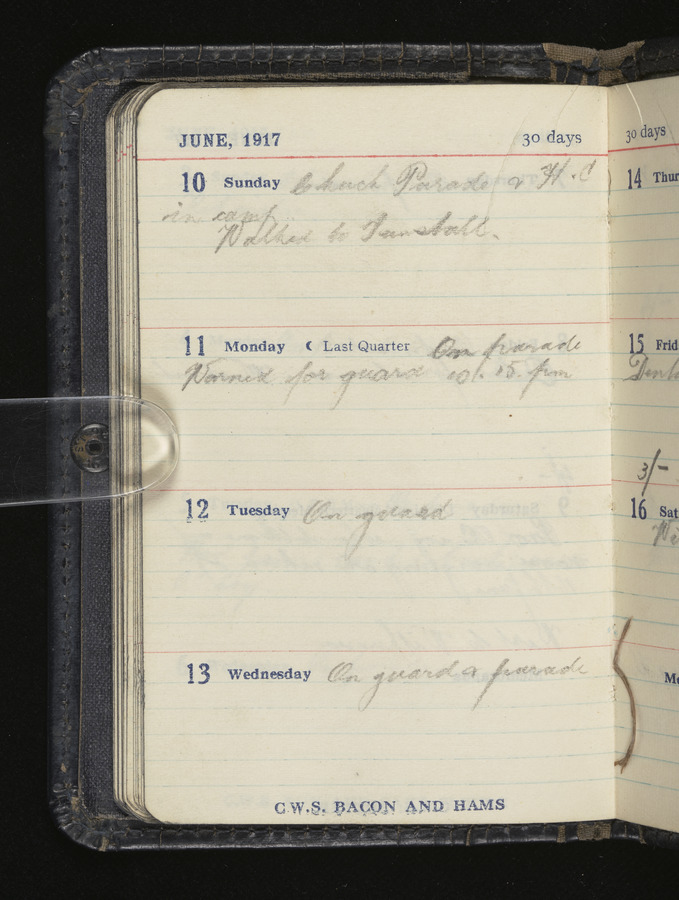 JUNE, 1917 30 days
10 Sunday Chuch Parade & H.C
in camp
Walked to Tunstall.
11 Monday ☾ Last Quarter On parade
Warned for guard 10.15. pm
12 Tuesday On guard
13 Wednesday On guard & parade
C.W.S. BACON AND HAMS
30 days
14 Thur
15 Frid
3/-
16 Sat